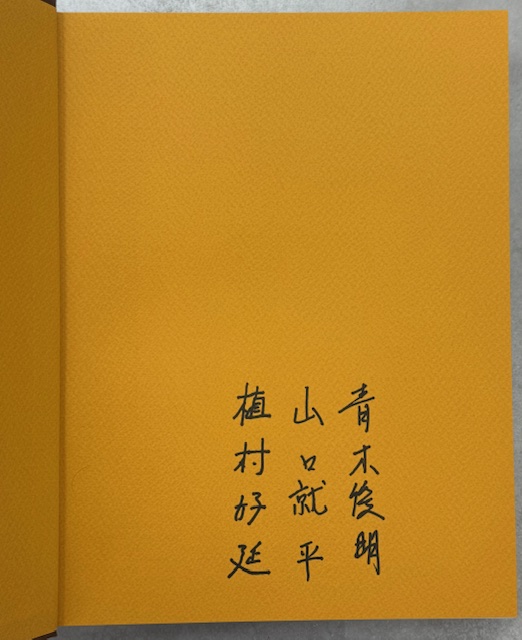 青木俊明
山口就平
植村好延